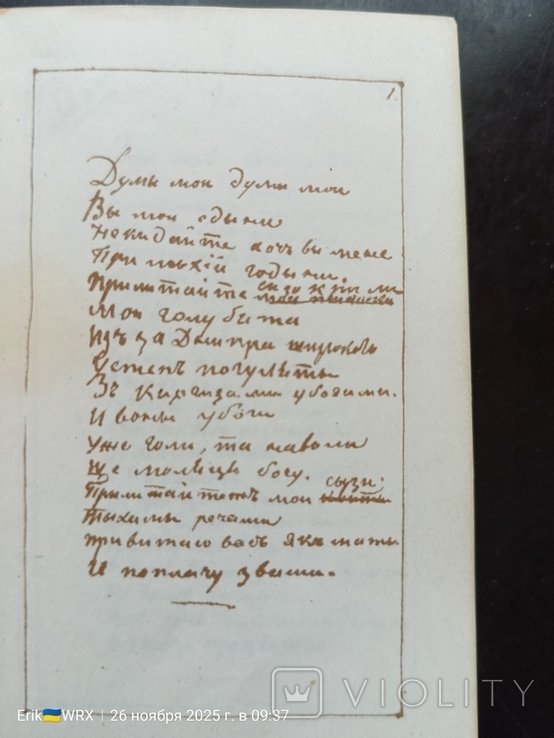 1.
Думы мои думы мои
Вы мои едыни
Некидайте хочъ вы мене
При лыхій годыни.
Прилитайте сызокрыли
мои
Мои голубята
Изъ за Днипра широкого
Устепъ погуляты
Зъ Киргизами убогими.
И вони убоги
Уже голи, та наволи
Ще молятця богу.
Прилитайтежъ мои сызи:
Тыхими речами
Привитаю васъ якъ маты
И поплачу звами.
VIOLITY
Erik WRX | 26 ноября 2025 г. в 09:37